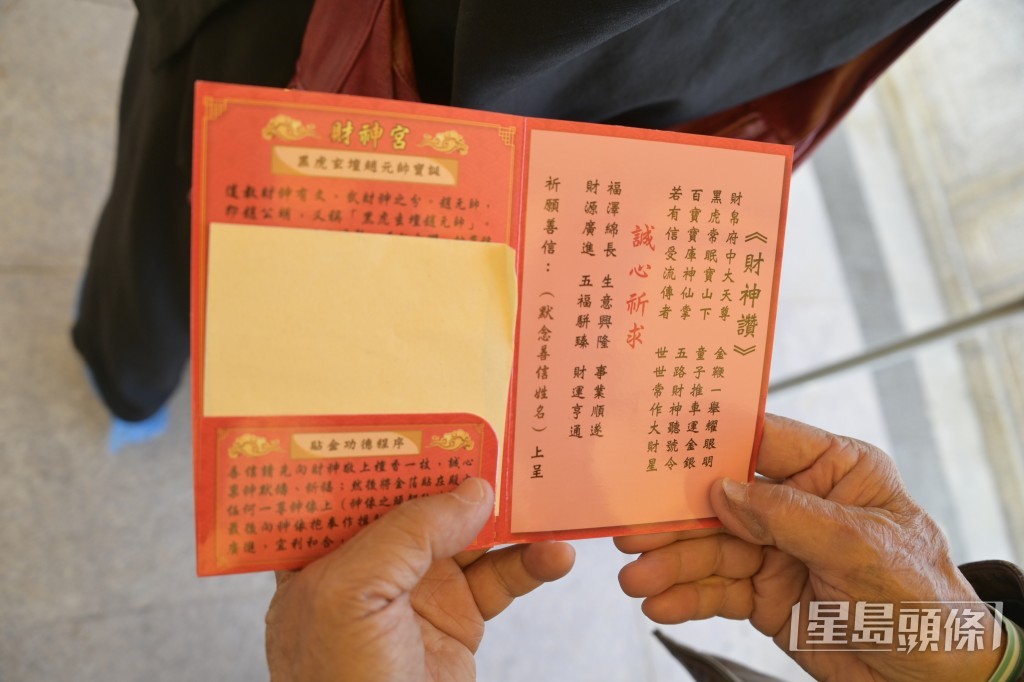 財神宮
黑虎玄壇趙元帥寶誕
道教財神有文、武財神之分。趙元帥，
即趙公明，又稱「黑虎玄壇趙元帥」，
貼金功德程序
善信請先向財神敬上檀香一枝，誠心
稟神默禱、祈福；然後將金箔貼在殿
任何一尊神像上（神像之
最後向神像抱拳作揖
廣進，宜利和合，
《財神讚》
財帛府中大天尊 金鞭一舉耀眼明
黑虎常眠寶山下 童子推車運金銀
百寶寶庫神仙掌 五路財神聽號令
若有信受流傳者 世世常作大財星
誠心祈求
福澤綿長 生意興隆 事業順遂
財源廣進 五福駢臻 財運亨通
祈願善信：（默念善信姓名）上呈
星島頭條